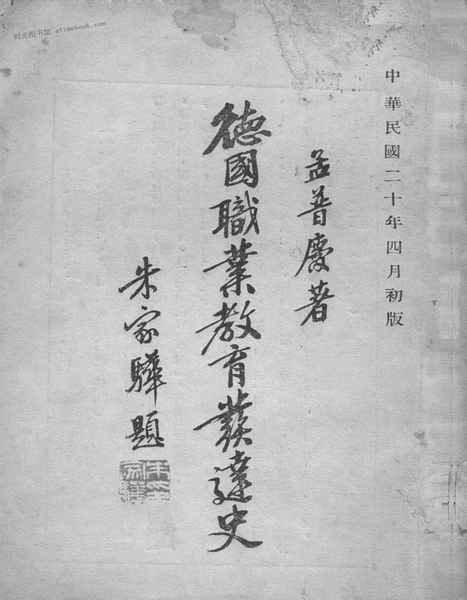 中華民國二十年四月初版
孟普慶著
德國職業教育發達史
朱家驊題